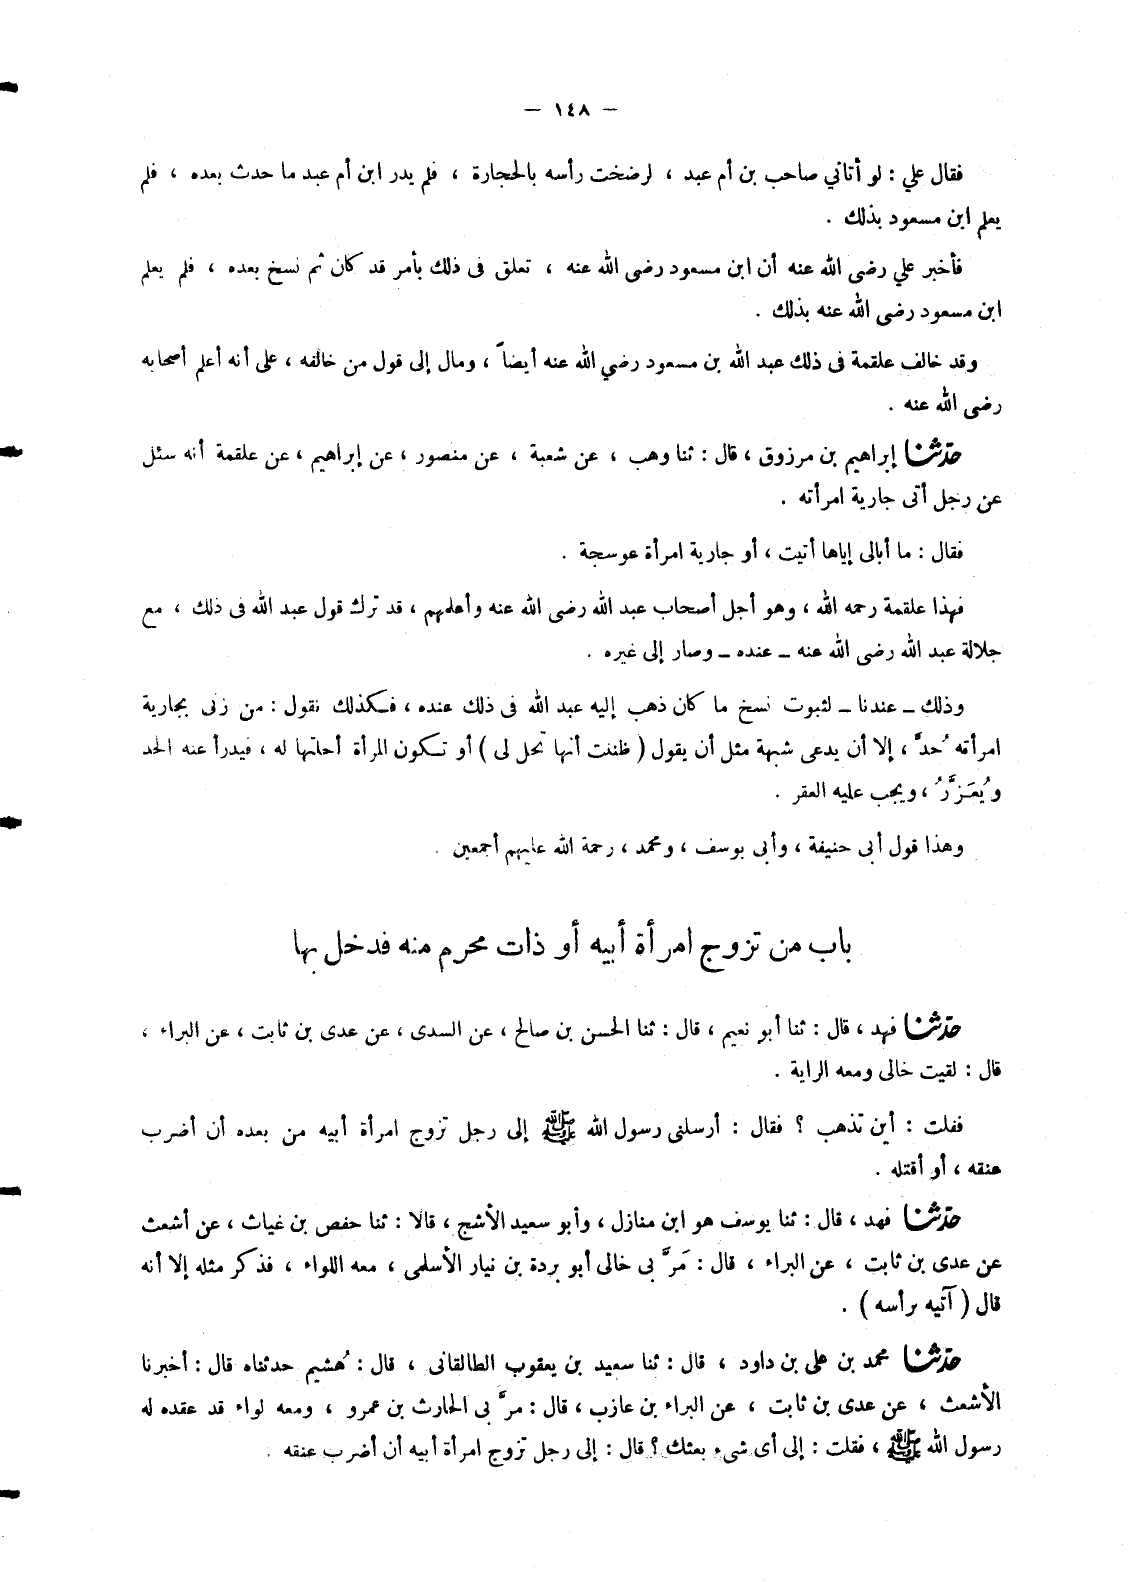 — ١٤٨ —
فقال علي : لو أتاني صاحب بن أم عبد ، لرضخت رأسه بالحجارة ، فلم يدر ابن أم عبد ما حدث بعده ، فلم
يعلم ابن مسعود بذلك .
فأخبر علي رضى الله عنه أن ابن مسعود رضى الله عنه ، تعلق فى ذلك بأمر قد كان ثم نسخ بعده ، فلم يعلم
ابن مسعود رضى الله عنه بذلك .
وقد خالف علقمة فى ذلك عبد الله بن مسعود رضي الله عنه أيضاً ، ومال إلى قول من خالفه ، على أنه أعلم أصحابه
رضى الله عنه .
حدّثنا إبراهيم بن مرزوق ، قال : ثنا وهب ، عن شعبة ، عن منصور ، عن إبراهيم ، عن علقمة أنه سئل
عن رجل أتى جارية امرأته .
فقال : ما أبالى إياها أتيت ، أو جارية امرأة عوسجة .
فهذا علقمة رحمه الله ، وهو أجل أصحاب عبد الله رضى الله عنه وأعلمهم ، قد ترك قول عبد الله فى ذلك ، مع
جلالة عبد الله رضى الله عنه ــ عنده ــ وصار إلى غيره .
وذلك ــ عندنا ــ لثبوت نسخ ما كان ذهب إليه عبد الله فى ذلك عنده ، فكذلك نقول : من زنى بجارية
امرأته ُحدَّ ، إلا أن يدعى شبهة مثل أن يقول ( ظننت أنها تحل لى ) أو تكون المرأة أحلتها له ، فيدرأ عنه الحد
و ُيعَزَّرُ ، ويجب عليه العقر .
وهذا قول أبى حنيفة ، وأبى يوسف ، ومحمد ، رحمة الله عليهم أجمعين .
باب من تزوج امرأة أبيه أو ذات محرم منه فدخل بها
حدّثنا فهد ، قال : ثنا أبو نعيم ، قال : ثنا الحسن بن صالح ، عن السدى ، عن عدى بن ثابت ، عن البراء ،
قال : لقيت خالى ومعه الراية .
فقلت : أين تذهب ؟ فقال : أرسلنى رسول الله ﷺ إلى رجل تزوج امرأة أبيه من بعده أن أضرب
عنقه ، أو أقتله .
حدّثنا فهد ، قال : ثنا يوسف هو ابن منازل ، وأبو سعيد الأشج ، قالا : ثنا حفص بن غياث ، عن أشعث
عن عدى بن ثابت ، عن البراء ، قال : مَرَّ بى خالى أبو بردة بن نيار الأسلمى ، معه اللواء ، فذكر مثله إلا أنه
قال ( آتيه برأسه ) .
حدّثنا محمد بن على بن داود ، قال : ثنا سعيد بن يعقوب الطالقانى ، قال : ُهشيم حدثناه قال : أخبرنا
الأشعث ، عن عدى بن ثابت ، عن البراء بن عازب ، قال : مرَّ بى الحارث بن عمرو ، ومعه لواء قد عقده له
رسول الله ﷺ ، فقلت : إلى أى شىء بعثك ؟ قال : إلى رجل تزوج امرأة أبيه أن أضرب عنقه .